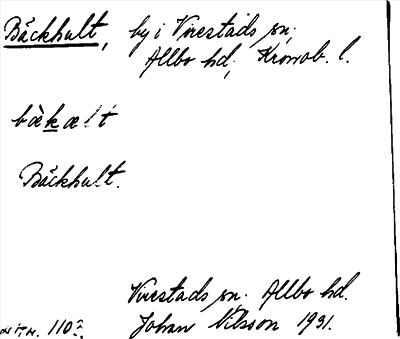 Bäckhult, by i Virestads sn,
Allbo hd, Kronob. l.
bàkælt
Bäckhult.
Virestads sn. Allbo hd.
Johan Nilsson 1931.